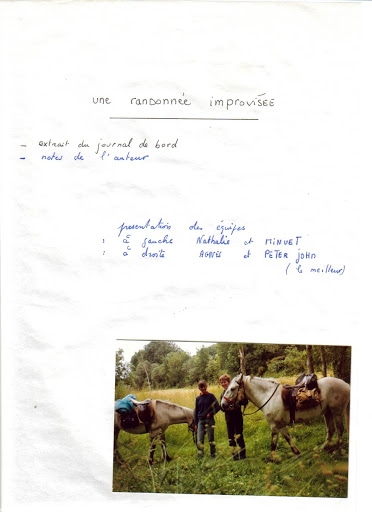 une randonnée improvisée
- extrait du journal de bord
- notes de l'auteur
présentation des équipes
: à gauche Nathalie et MINUET
: à droite AGNES et PETER JOHN
(le meilleur)